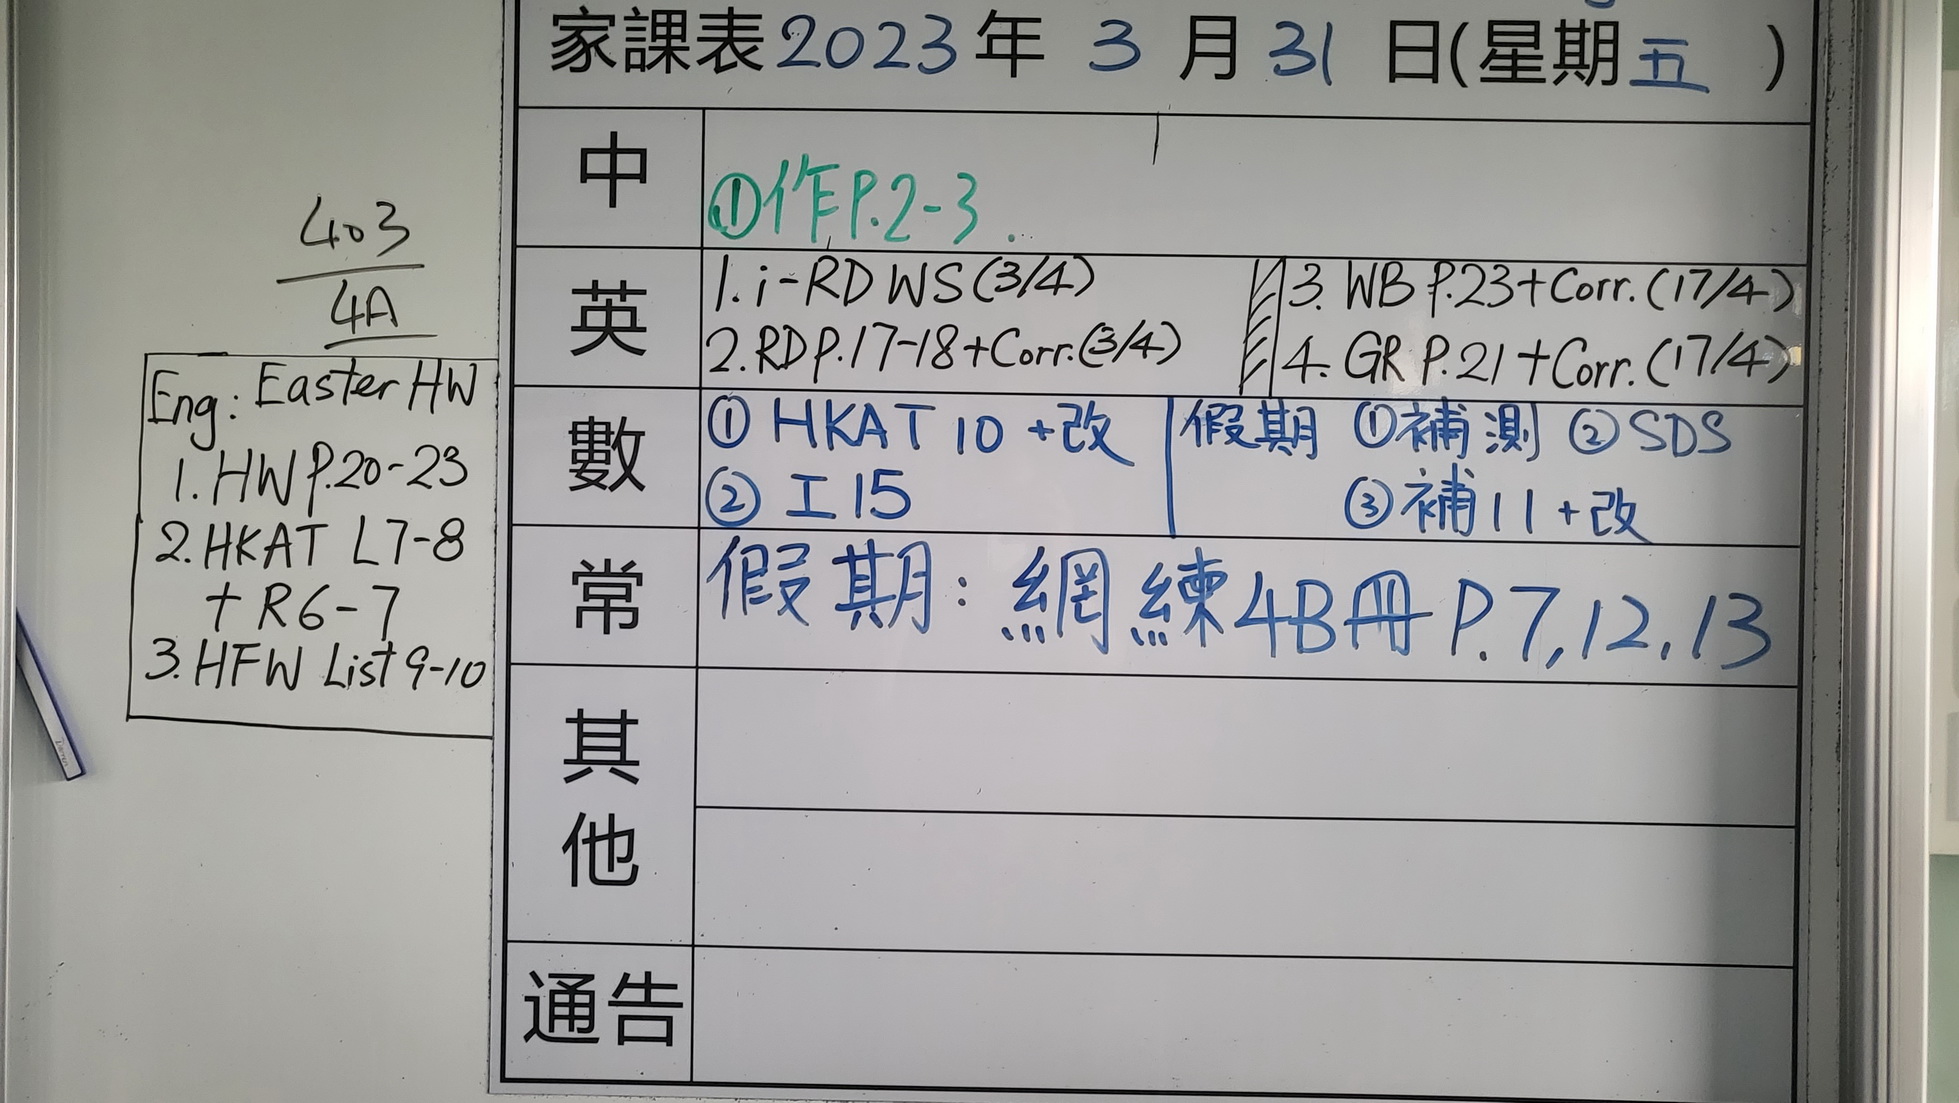 家課表2023年 3 月 31 日(星期五 )
403
4A
Eng: Easter HW
1. HW P.20-23
2. HKAT L7-8
+ R6-7
3. HFW List 9-10
中
①作P.2-3.
英
1. i-RD WS (3/4)
2. RD P.17-18+Corr.(3/4)
3. WB P.23+Corr.(17/4)
4. GR P.21+Corr.(17/4)
數
① HKAT 10 +改
② 工15
假期 ①補測 ②SDS
③補11+改
常
假期: 網練4B冊 P.7,12,13
其他
通告